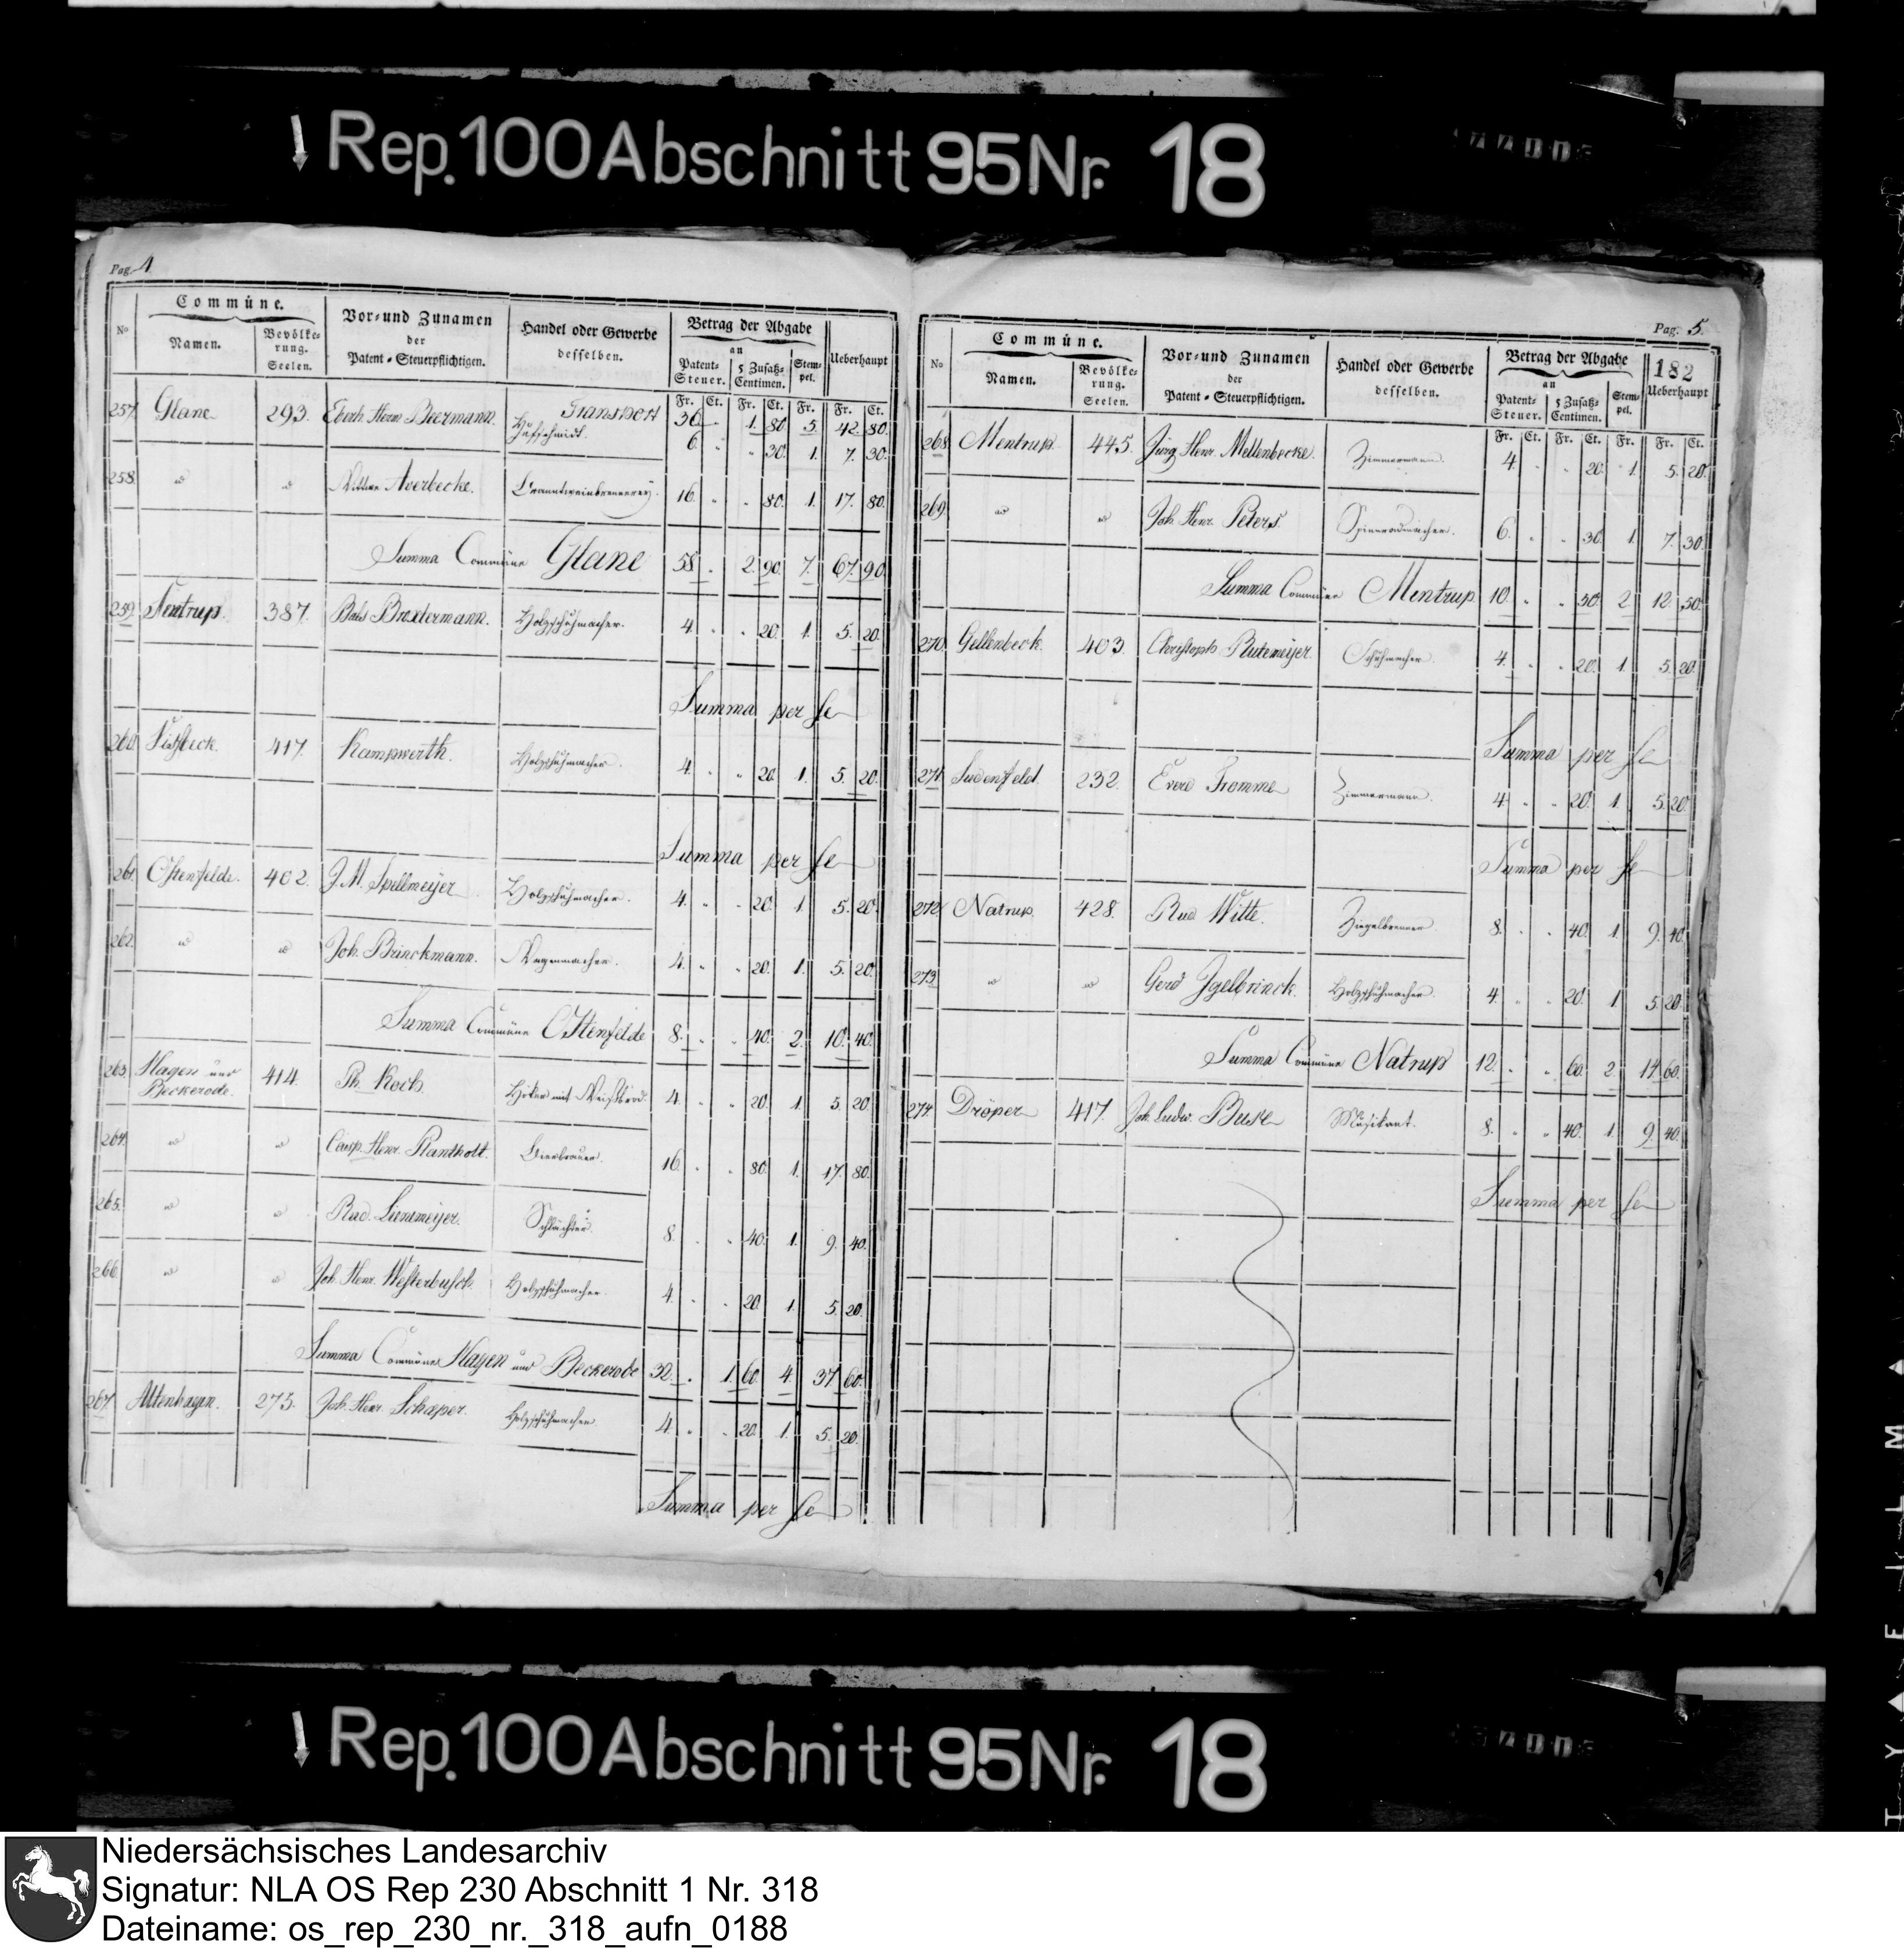 Rep. 100 Abschnitt 95 Nr. 18
Pag. 4
No
Commüne.
Namen.
Bevölke-
rung.
Seelen.
Vor- und Zunamen
der
Patent-Steuerpflichtigen.
Handel oder Gewerbe
desselben.
Betrag der Abgabe
an
Patent-
Steuer.
5 Zusatz-
Centimen.
Stem-
pel.
Ueberhaupt
Fr. Ct. Fr. Ct. Fr. Fr. Ct.
Transport 36 " 1. 80. 5. 42. 80.
257. Glane 293. Eberh. Herm. Beermann. Hufschmidt. 6. " " 30. 1. 7. 30.
258. " " Wittwe Averbecke. Branntweinbrennerey. 16. " " 80. 1. 17. 80.
Summa Commüne Glane 58. " 2. 90. 7. 67. 90.
259. Sentrup. 387. Broxtermann. Holzschuhmacher. 4. " " 20. 1. 5. 20.
Summa per se
260. 417. Kampwerth. Holzschuhmacher. 4. " " 20. 1. 5. 20.
Summa per se
261. Ostenfelde. 402. J. M. Spellmeijer Holzschuhmacher. 4. " " 20. 1. 5. 20.
262. " " Joh. Brinckmann. Wagenmacher. 4. " " 20. 1. 5. 20.
Summa Commüne Ostenfelde 8. " " 40. 2. 10. 40.
263. Hagen und
Beckerode. 414. Ph. Koch. Höker mit Weißbrod. 4. " " 20. 1. 5. 20
264. " " Casp. Henr. Bierbrauer. 16. " " 80. 1. 17. 80.
265. " " Rud. Liensmeijer. Schlächter. 8. " " 40. 1. 9. 40.
266 " " Joh. Henr. Westerbusch. Holzschuhmacher. 4. " " 20. 1. 5. 20.
Summa Commüne Hagen und Beckerode 32. " 1. 60. 4. 37. 60.
267. Altenhagen. 275. Joh. Henr. Schaeper. Holzschuhmacher. 4. " " 20. 1. 5. 20.
Summa per se
Pag. 5.
182
No
Commüne.
Namen.
Bevölke-
rung.
Seelen.
Vor- und Zunamen
der
Patent-Steuerpflichtigen.
Handel oder Gewerbe
desselben.
Betrag der Abgabe
an
Patent-
Steuer.
5 Zusatz-
Centimen.
Stem-
pel.
Ueberhaupt
Fr. Ct. Fr. Ct. Fr. Fr. Ct.
268 Mentrup. 445. Jürg Henr. Mellenbecke. Zimmermann. 4. " " 20. 1. 5. 20.
269. " " Joh. Henr. Peters Spinnradmacher. 6. " " 30. 1. 7. 30.
Summa Commüne Mentrup 10. " " 50. 2. 12. 50.
270. Gellenbeck. 403. Christoph Rutemeijer. Schuhmacher. 4. " " 20. 1. 5. 20.
Summa per se
271. Sudenfeld. 232. Everd Fromme Zimmermann. 4. " " 20. 1. 5. 20
Summa per se
272. Natrup. 428. Rud. Witte. Ziegelbrenner. 8. " " 40. 1. 9. 40.
273. " " Gerd Igelbrinck. Holzschuhmacher. 4. " " 20. 1 5. 20.
Summa Commüne Natrup 12. " " 60. 2. 14. 60.
274. Dröper 417. Joh. Ludw. Buse Musikant. 8. " " 40. 1. 9. 40.
Summa per se
Rep. 100 Abschnitt 95 Nr. 18
Niedersächsisches Landesarchiv
Signatur: NLA OS Rep 230 Abschnitt 1 Nr. 318
Dateiname: os_rep_230_nr._318_aufn_0188